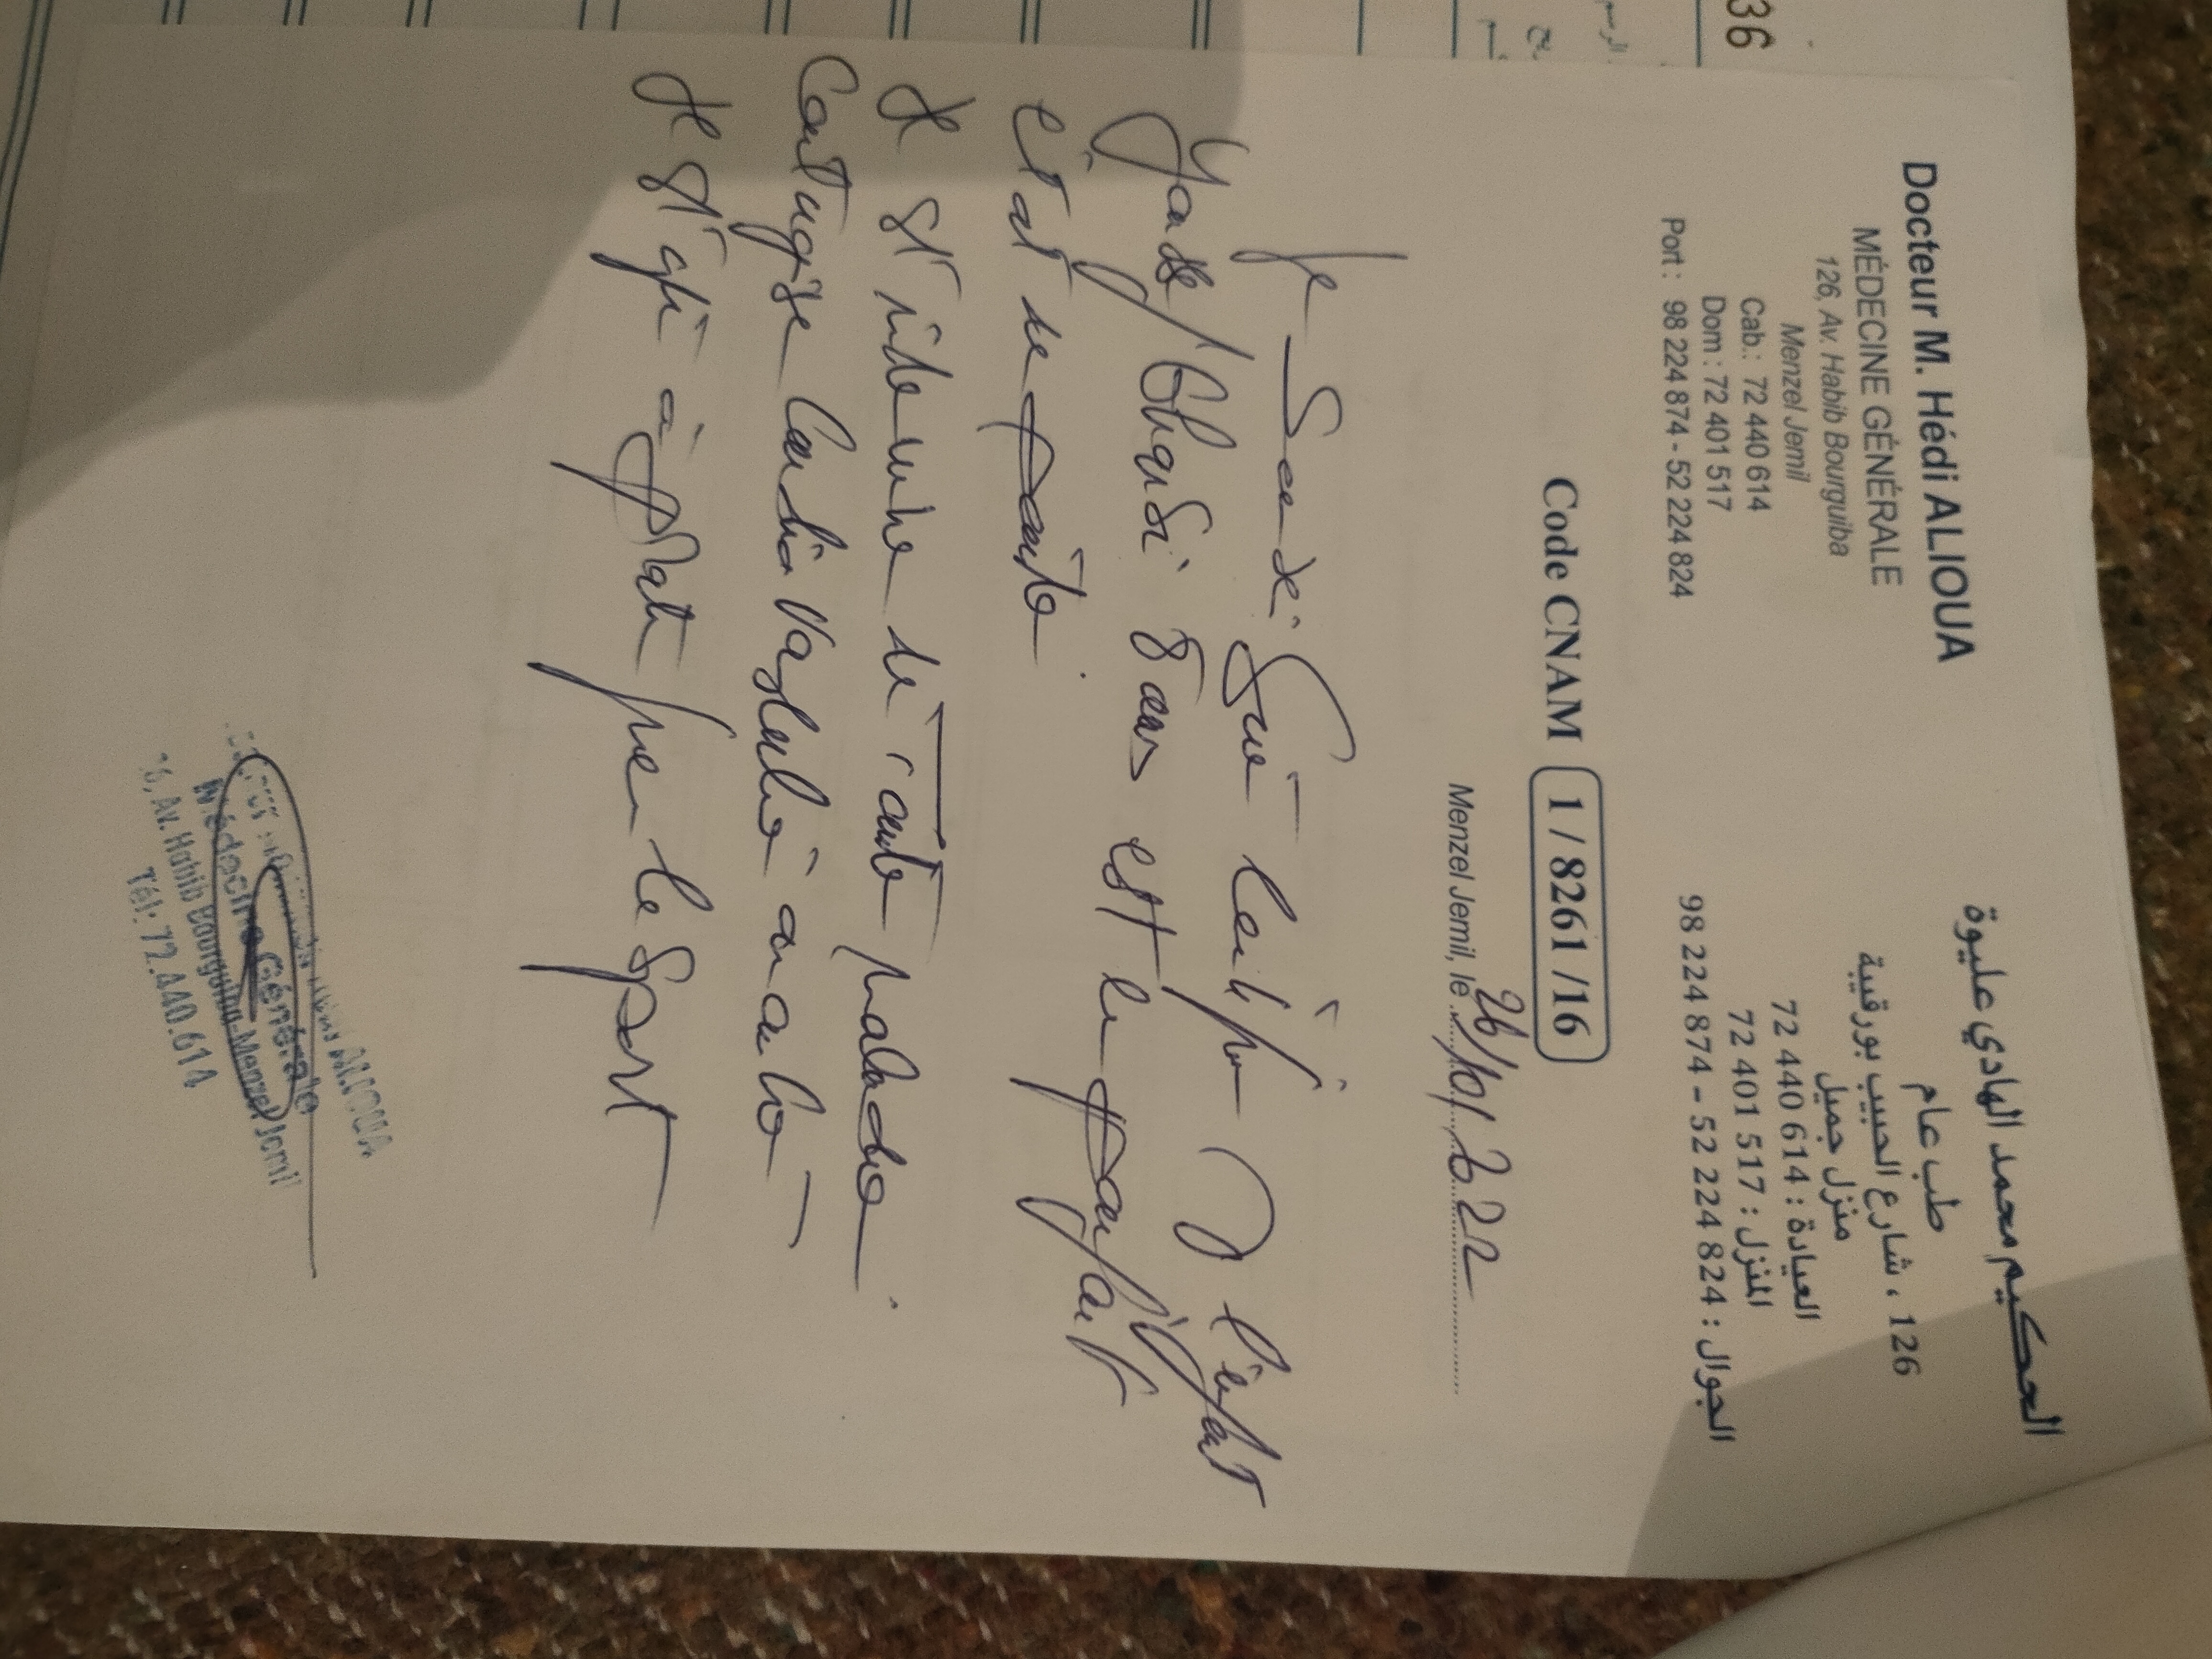 36
Docteur M. Hédi ALIOUA
MÉDECINE GÉNÉRALE
126, Av. Habib Bourguiba
Menzel Jemil
Cab.: 72 440 614
Dom : 72 401 517
Port : 98 224 874 - 52 224 824
الحكيم محمد الهادي عليوة
طب عام
126 ، شارع الحبيب بورقيبة
منزل جميل
العيادة : 72 440 614
المنزل : 72 401 517
الجوال : 98 224 874 - 52 224 824
Code CNAM 1 / 8261 /16
Menzel Jemil, le 26/01/2022
Je certifie que l'enfant
8 ans est en parfait
état de santé
Il est indemne de toute maladie
contagieuse cardio vasculaire
Il est apte à pratiquer le sport
ALIOUA
Médecine Générale
Av. Habib Bourguiba-Menzel Jemil
Tél: 72.440.614